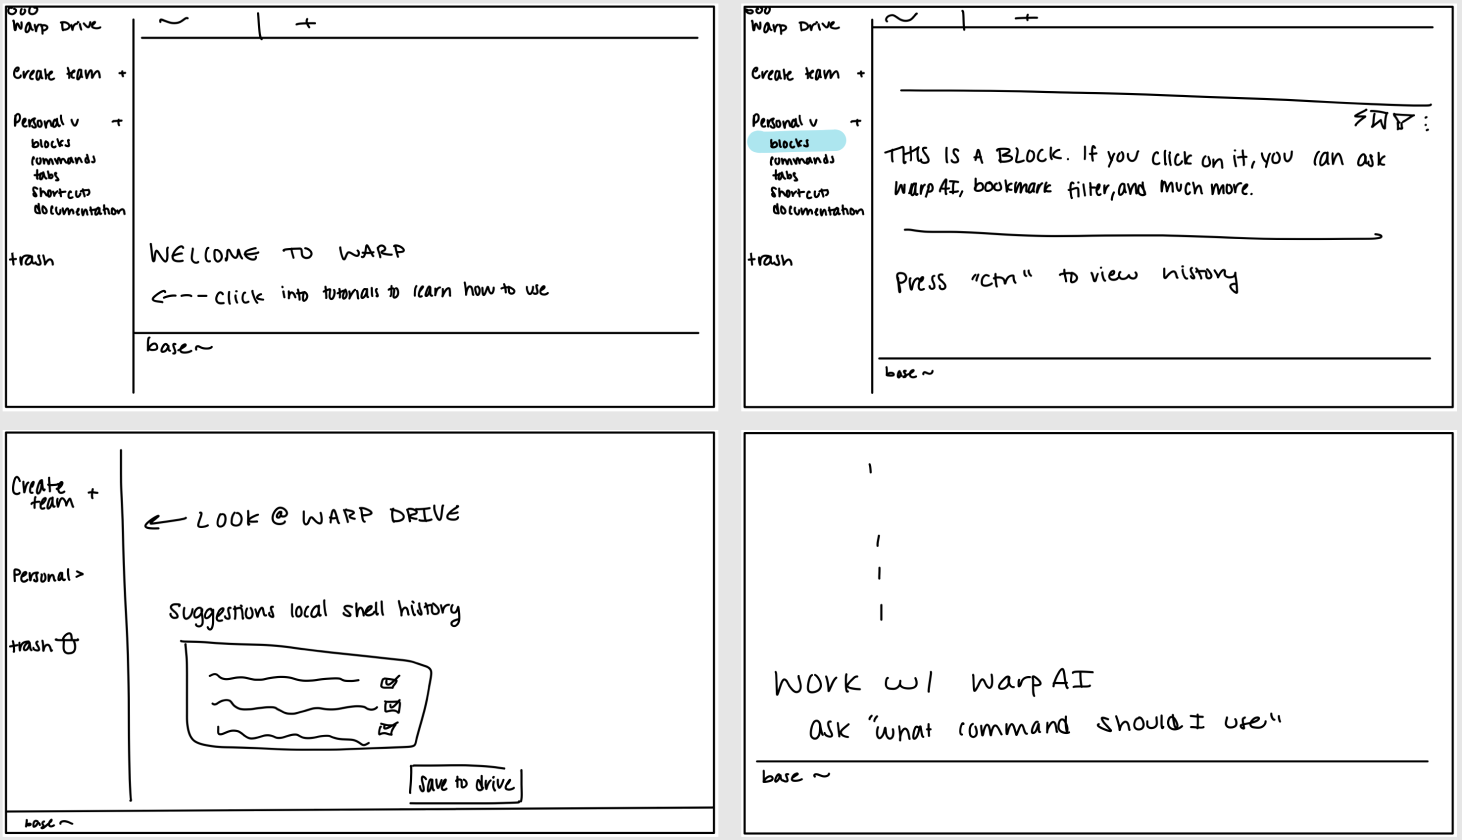 Warp Drive
~ | +
Create team +
Personal v +
blocks
commands
tabs
Shortcut
documentation
trash
WELCOME TO WARP
<--- click into tutorials to learn how to use
base ~
Warp Drive
~ | +
Create team +
Personal v +
blocks
commands
tabs
Shortcut
documentation
trash
THIS IS A BLOCK. If you click on it, you can ask
Warp AI, bookmark filter, and much more.
Press "ctrl" to view history
base ~
Create
team +
Personal >
trash
← LOOK @ WARP DRIVE
Suggestions local shell history
Save to drive
base ~
Work w/ Warp AI
ask "what command should I use"
base ~